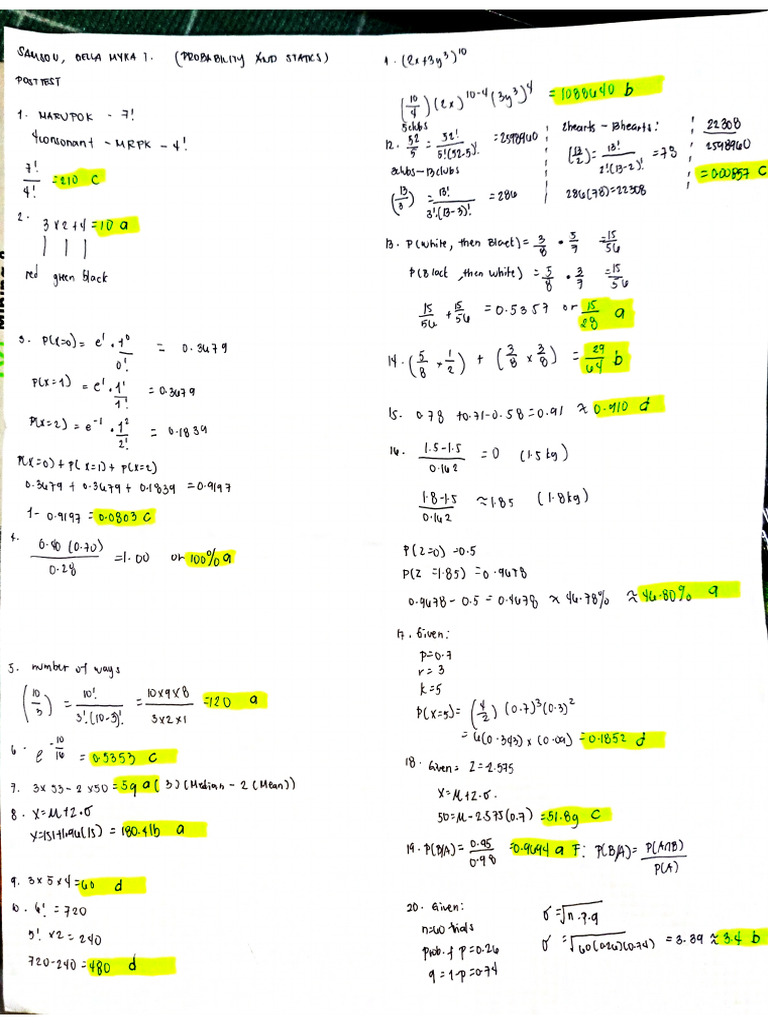 SAMSOU, DELLA MYKA T. (PROBABILITY AND STATICS)
POSTTEST
1. MARUPOK - 7!
4consonant - MRPK - 4!
7!/4! = 210 C
2. 3 x 2 + 4 = 10 a
red green black
3. P(X=0) = e^1 • 1^0/0! = 0.3679
P(X=1) = e^1 • 1^1/1! = 0.3679
P(X=2) = e^-1 • 1^2/2! = 0.1839
P(X=0) + P(X=1) + P(X=2)
0.3679 + 0.3679 + 0.1839 = 0.9197
1 - 0.9197 = 0.0803 C
4. 0.40 (0.70)/0.28 = 1.00 or 100% a
5. number of ways
(10/3) = 10!/3!(10-3)! = 10x9x8/3x2x1 = 120 a
6. e^-10/16 = 0.5353 C
7. 3x 53 - 2 x50 = 59 a (3)(Median - 2 (Mean))
8. X = M+Z.σ
X=151+1.96(15) = 180.4lb a
9. 3 x 5 x 4 = 60 d
10. 6! = 720
5! x2 = 240
720-240 = 480 d
1. (2x+3y^3)^10
(10/4) (2x)^10-4 (3y^3)^4 = 1088640 b
5clubs
12. 52/5 = 52!/5!(52-5)! = 2598960
3clubs - 13clubs
(13/3) = 13!/3!(13-3)! = 286
2hearts - 13hearts:
(13/2) = 13!/2!(13-2)! = 78
286(78) = 22308
22308/2598960
= 0.00857 C
13. P(white, then Black) = 3/8 • 5/7 = 15/56
P(Black, then white) = 5/8 • 3/7 = 15/56
15/56 + 15/56 = 0.5357 or 15/28 a
14. (5/8 x 1/2) + (3/8 x 3/8) = 29/64 b
15. 0.78 + 0.71 - 0.58 = 0.91 ≈ 0.910 d
16. 1.5-1.5/0.162 = 0 (1.5kg)
1.8-1.5/0.162 ≈ 1.85 (1.8kg)
P(Z=0) = 0.5
P(Z=1.85) = 0.9678
0.9678 - 0.5 = 0.4678 ≈ 46.78% ≈ 46.80% a
17. Given:
P=0.7
r = 3
k = 5
P(X=5) = (4/2) (0.7)^3 (0.3)^2
= 6(0.343) x (0.09) = 0.1852 d
18. Given: Z = 2.575
X = M+Z.σ.
50 = M - 2.575(0.7) = 51.8g C
19. P(B/A) = 0.95/0.98 = 0.9694 a F: P(B/A) = P(A∩B)/P(A)
20. Given:
n=60 trials
Prob. of P = 0.26
q = 1-p = 0.74
σ = √n.p.q
σ = √60(0.26)(0.74) = 3.39 ≈ 3.4 b